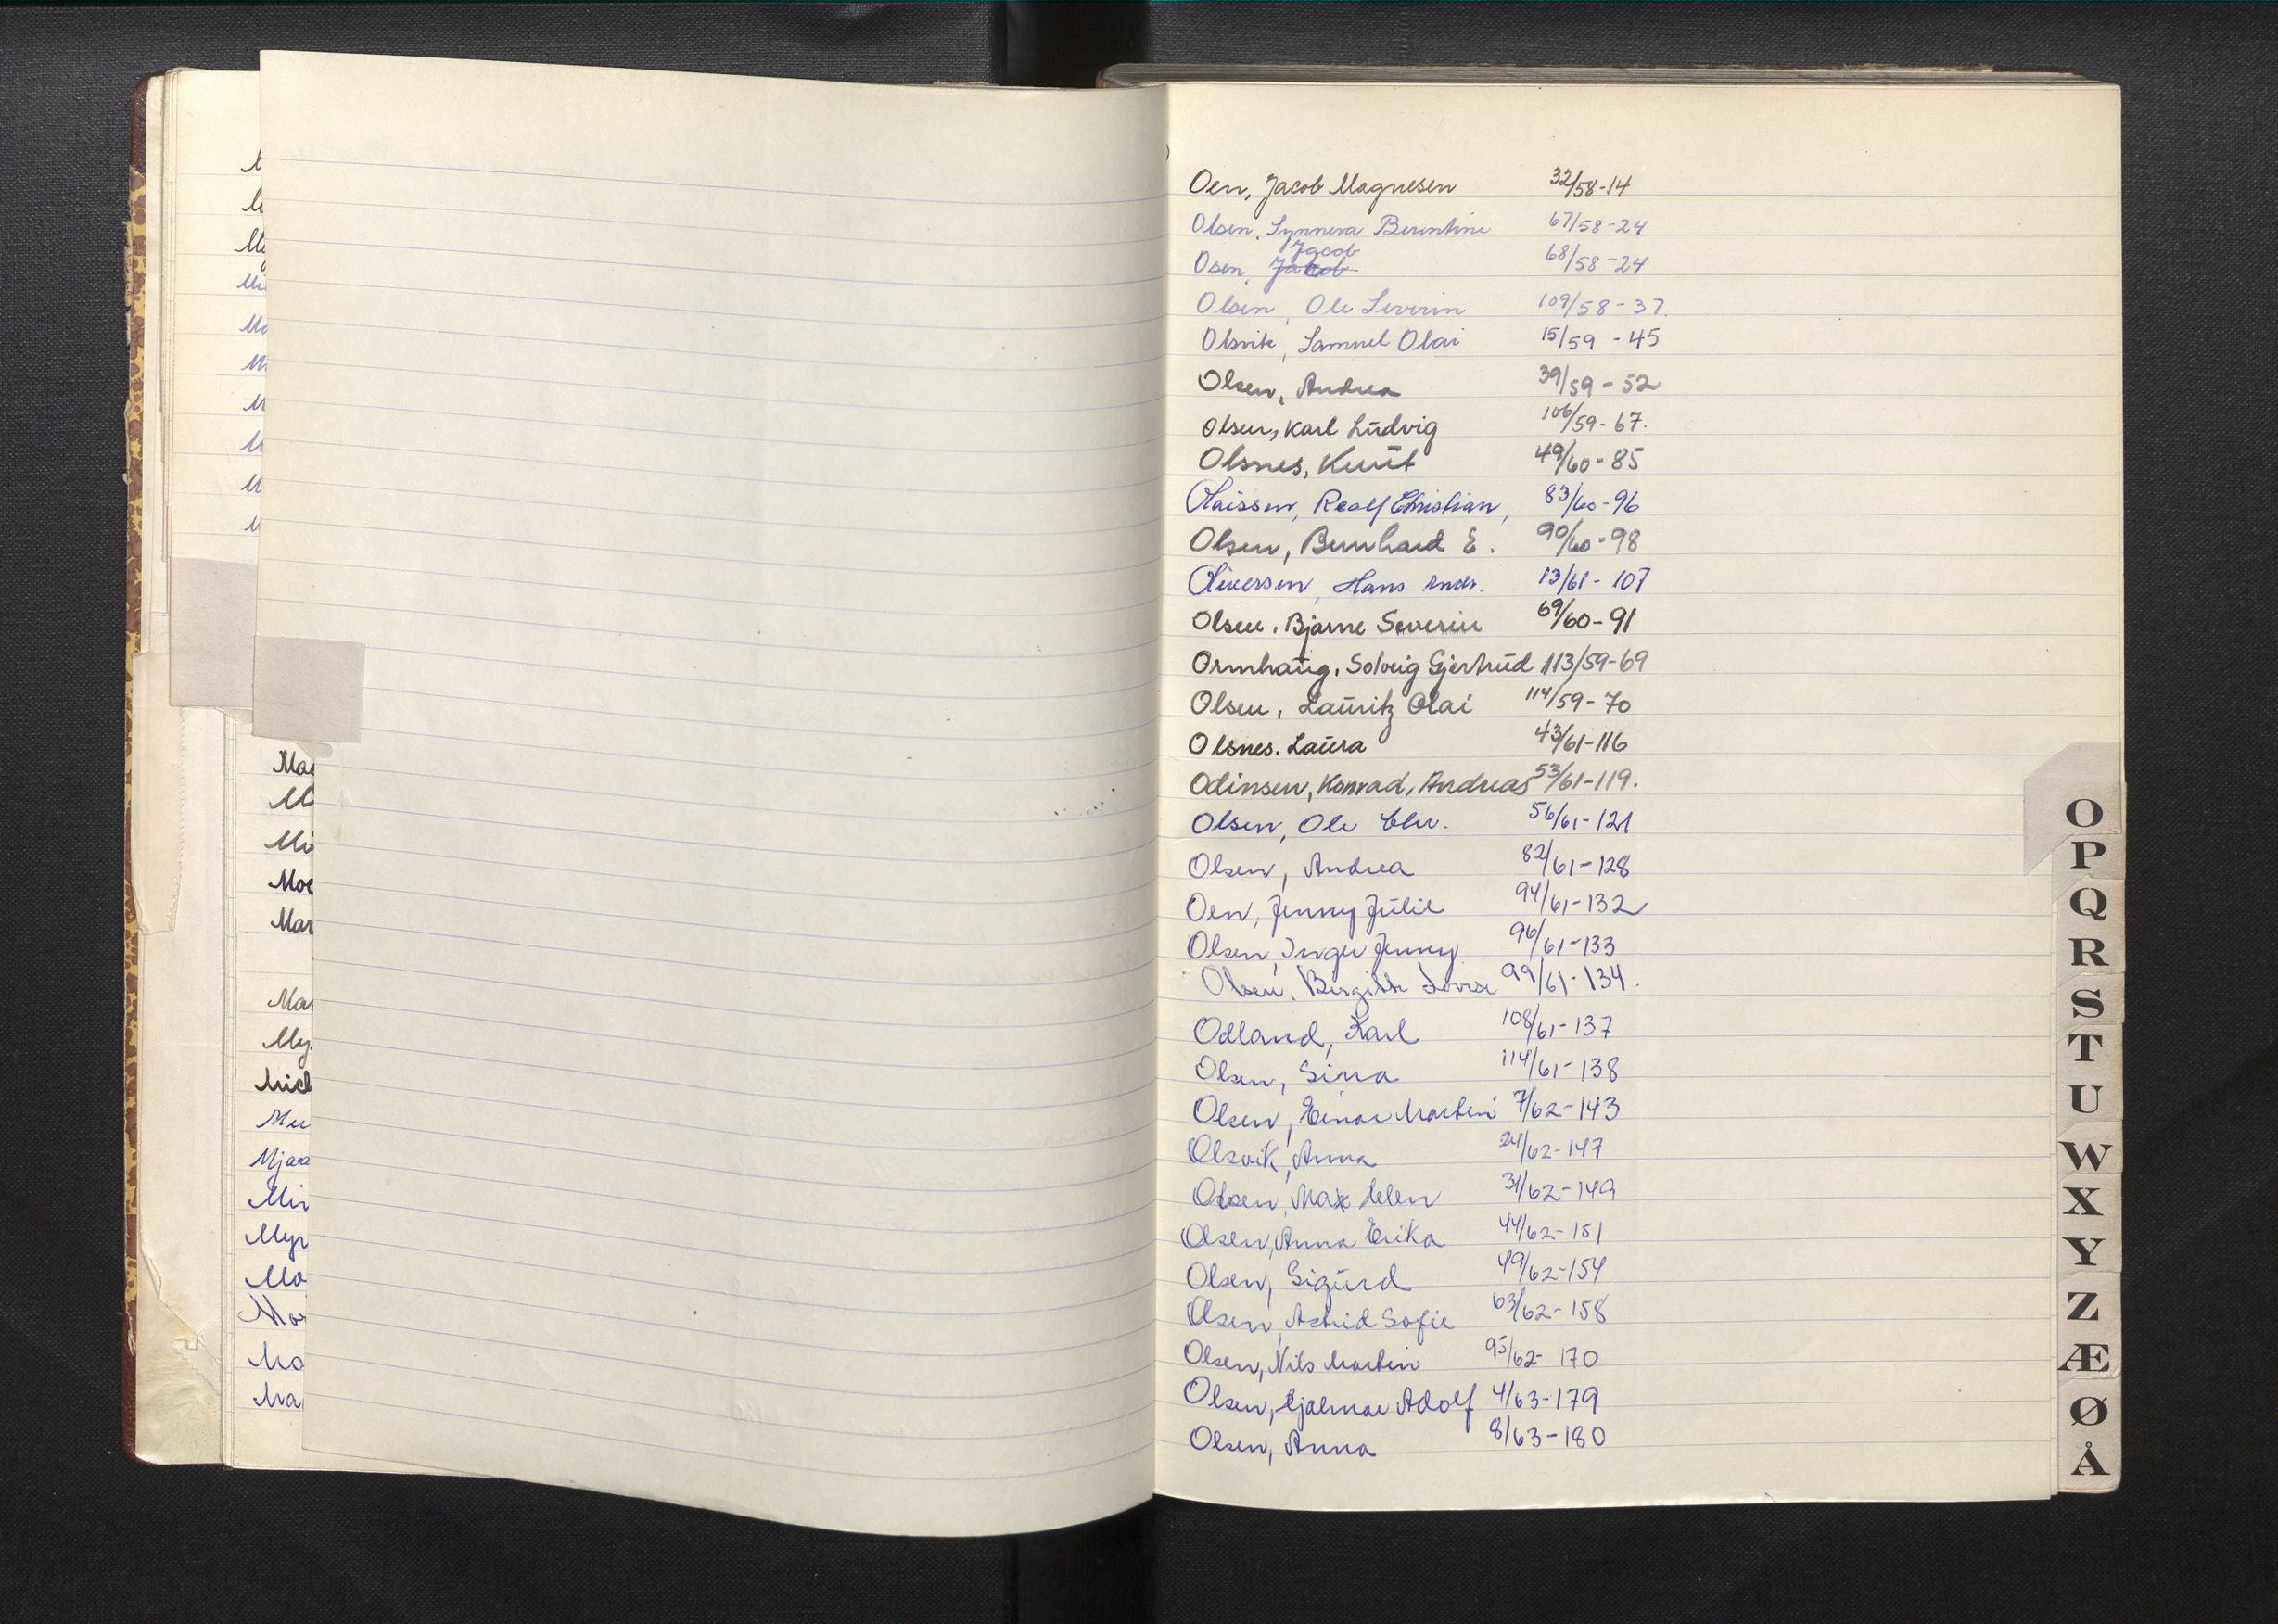 M
M
My
Mi
Mo
M
M
M
M
M
Mo
M
Mi
Moe
Mar
Mar
My
Mich
Mu
Mjaa
Mir
Myr
Mo
Mor
Mo
Ma
Oen, Jacob Magnesen 32/58-14
Olsen, Synneva Berentine 67/58-24
Jacob
Osen, Jakob 68/58-24
Olsen, Ole Severin 109/58-37.
Olsvik, Samuel Olai 15/59-45
Olsen, Andrea 39/59-52
Olsen, Karl Ludvig 106/59-67.
Olsnes, Knut 49/60-85
Olaissen, Rolf Christian, 83/60-96
Olsen, Bernhard E. 90/60-98
Oliversen, Hans Andr. 13/61-107
Olsen, Bjarne Severin 69/60-91
Ormhaug, Solveig Gjertrud 113/59-69
Olsen, Lauritz Olai 114/59-70
Olsnes. Laura 43/61-116
Odinsen, Konrad, Andreas 53/61-119.
Olsen, Ole Chr. 56/61-121
Olsen, Andrea 82/61-128
Oen, Jenny Julie 94/61-132
Olsen, Inger Jenny 96/61-133
Olsen, Birgitte Lovise 99/61-134.
Odland, Karl 108/61-137
Olsen, Sina 114/61-138
Olsen, Einar Martin 7/62-143
Olsvik, Anna 24/62-147
Olsen, Max Elen 31/62-149
Olsen, Anna Erika 44/62-151
Olsen, Sigurd 49/62-154
Olsen, Astrid Sofie 63/62-158
Olsen, Nils Martin 95/62-170
Olsen, Hjalmar Adolf 4/63-179
Olsen, Anna 8/63-180
O
P
Q
R
S
T
U
W
X
Y
Z
Æ
Ø
Å